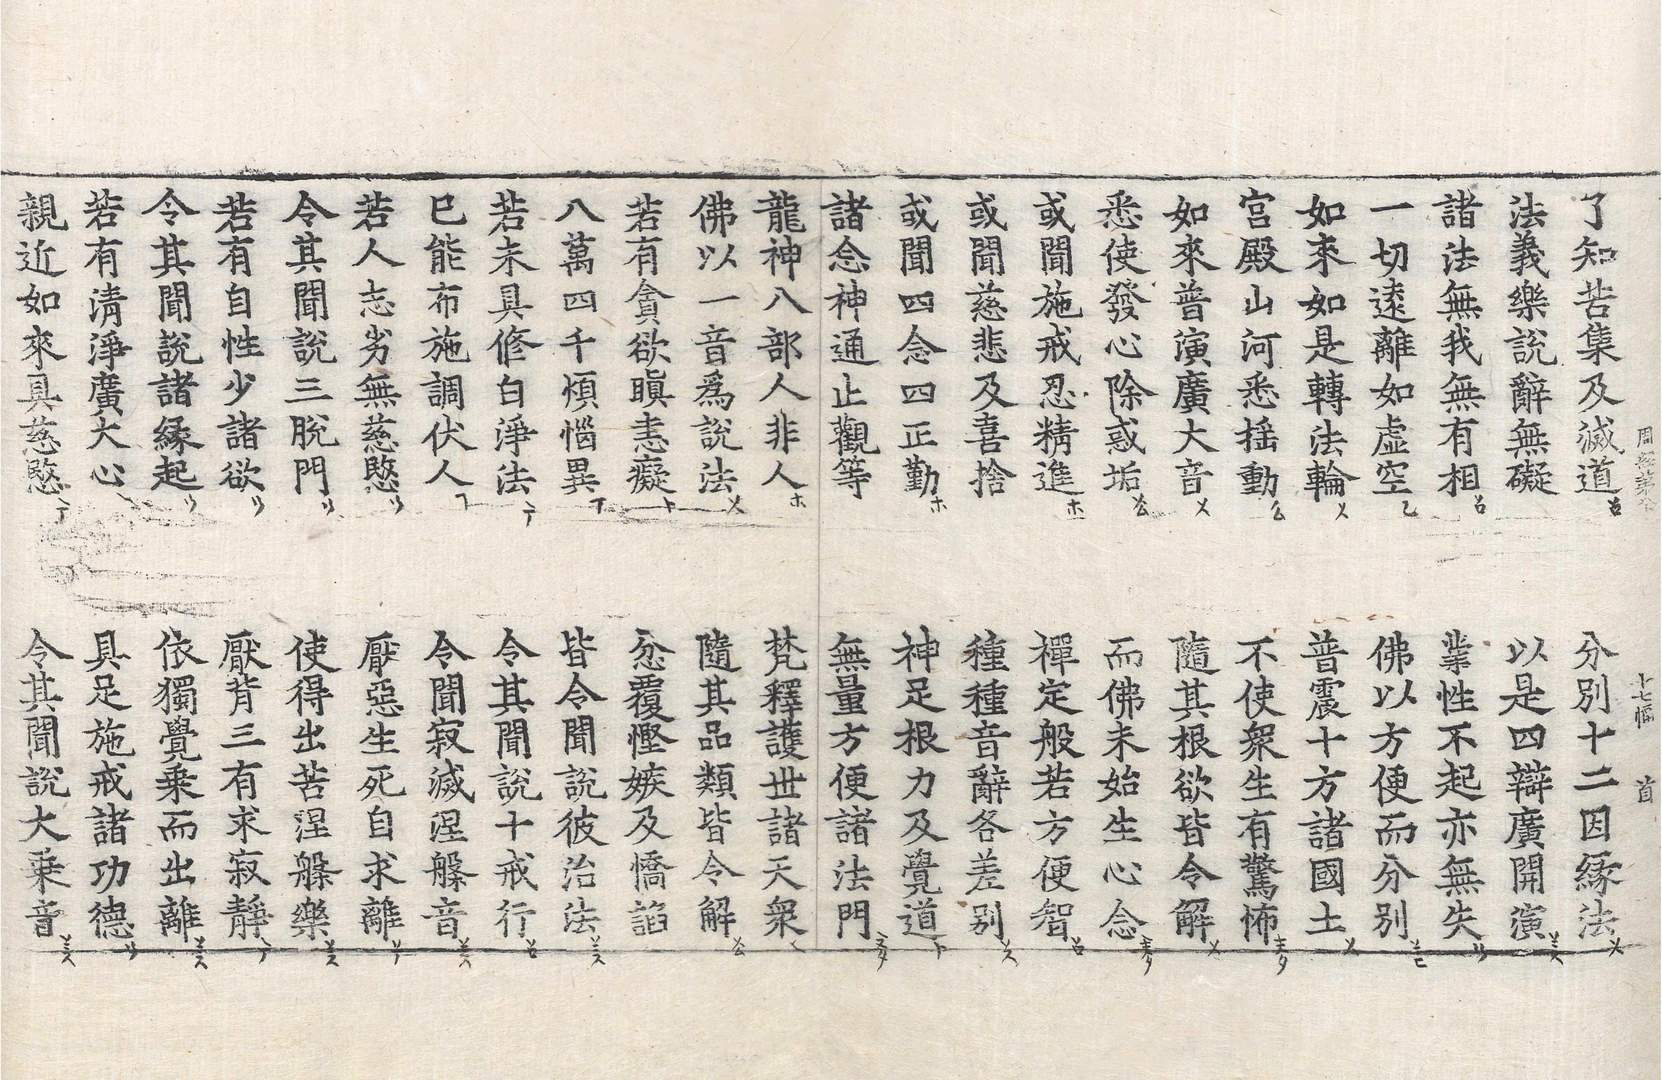 十七幅 首
了知苦集及滅道 分別十二因縁法
法義樂說辭無礙 以是四辯廣開演
諸法無我無有相 業性不起亦無失
一切逺離如虛空 佛以方便而分別
如來如是轉法輪 普震十方諸國土
宮殿山河悉揺動 不使衆生有驚怖
如來普演廣大音 隨其根欲皆令解
悉使發心除惑垢 而佛未始生心念
或聞施戒忍精進 禪定般若方便智
或聞慈悲及喜捨 種種音辭各差別
或聞四念四正勤 神足根力及覺道
諸念神通止觀等 無量方便諸法門
龍神八部人非人 梵釋護世諸天衆
佛以一音爲說法 隨其品類皆令解
若有貪欲瞋恚癡 忿覆慳嫉及憍諂
八萬四千煩惱異 皆令聞說彼治法
若未具修白淨法 令其聞說十戒行
已能布施調伏人 令聞寂滅涅槃音
若人志劣無慈愍 厭惡生死自求離
令其聞說三脫門 使得出苦涅槃樂
若有自性少諸欲 厭背三有求寂靜
令其聞說諸緣起 依獨覺乗而出離
若有清淨廣大心 具足施戒諸功德
親近如來具慈愍 令其聞說大乗音